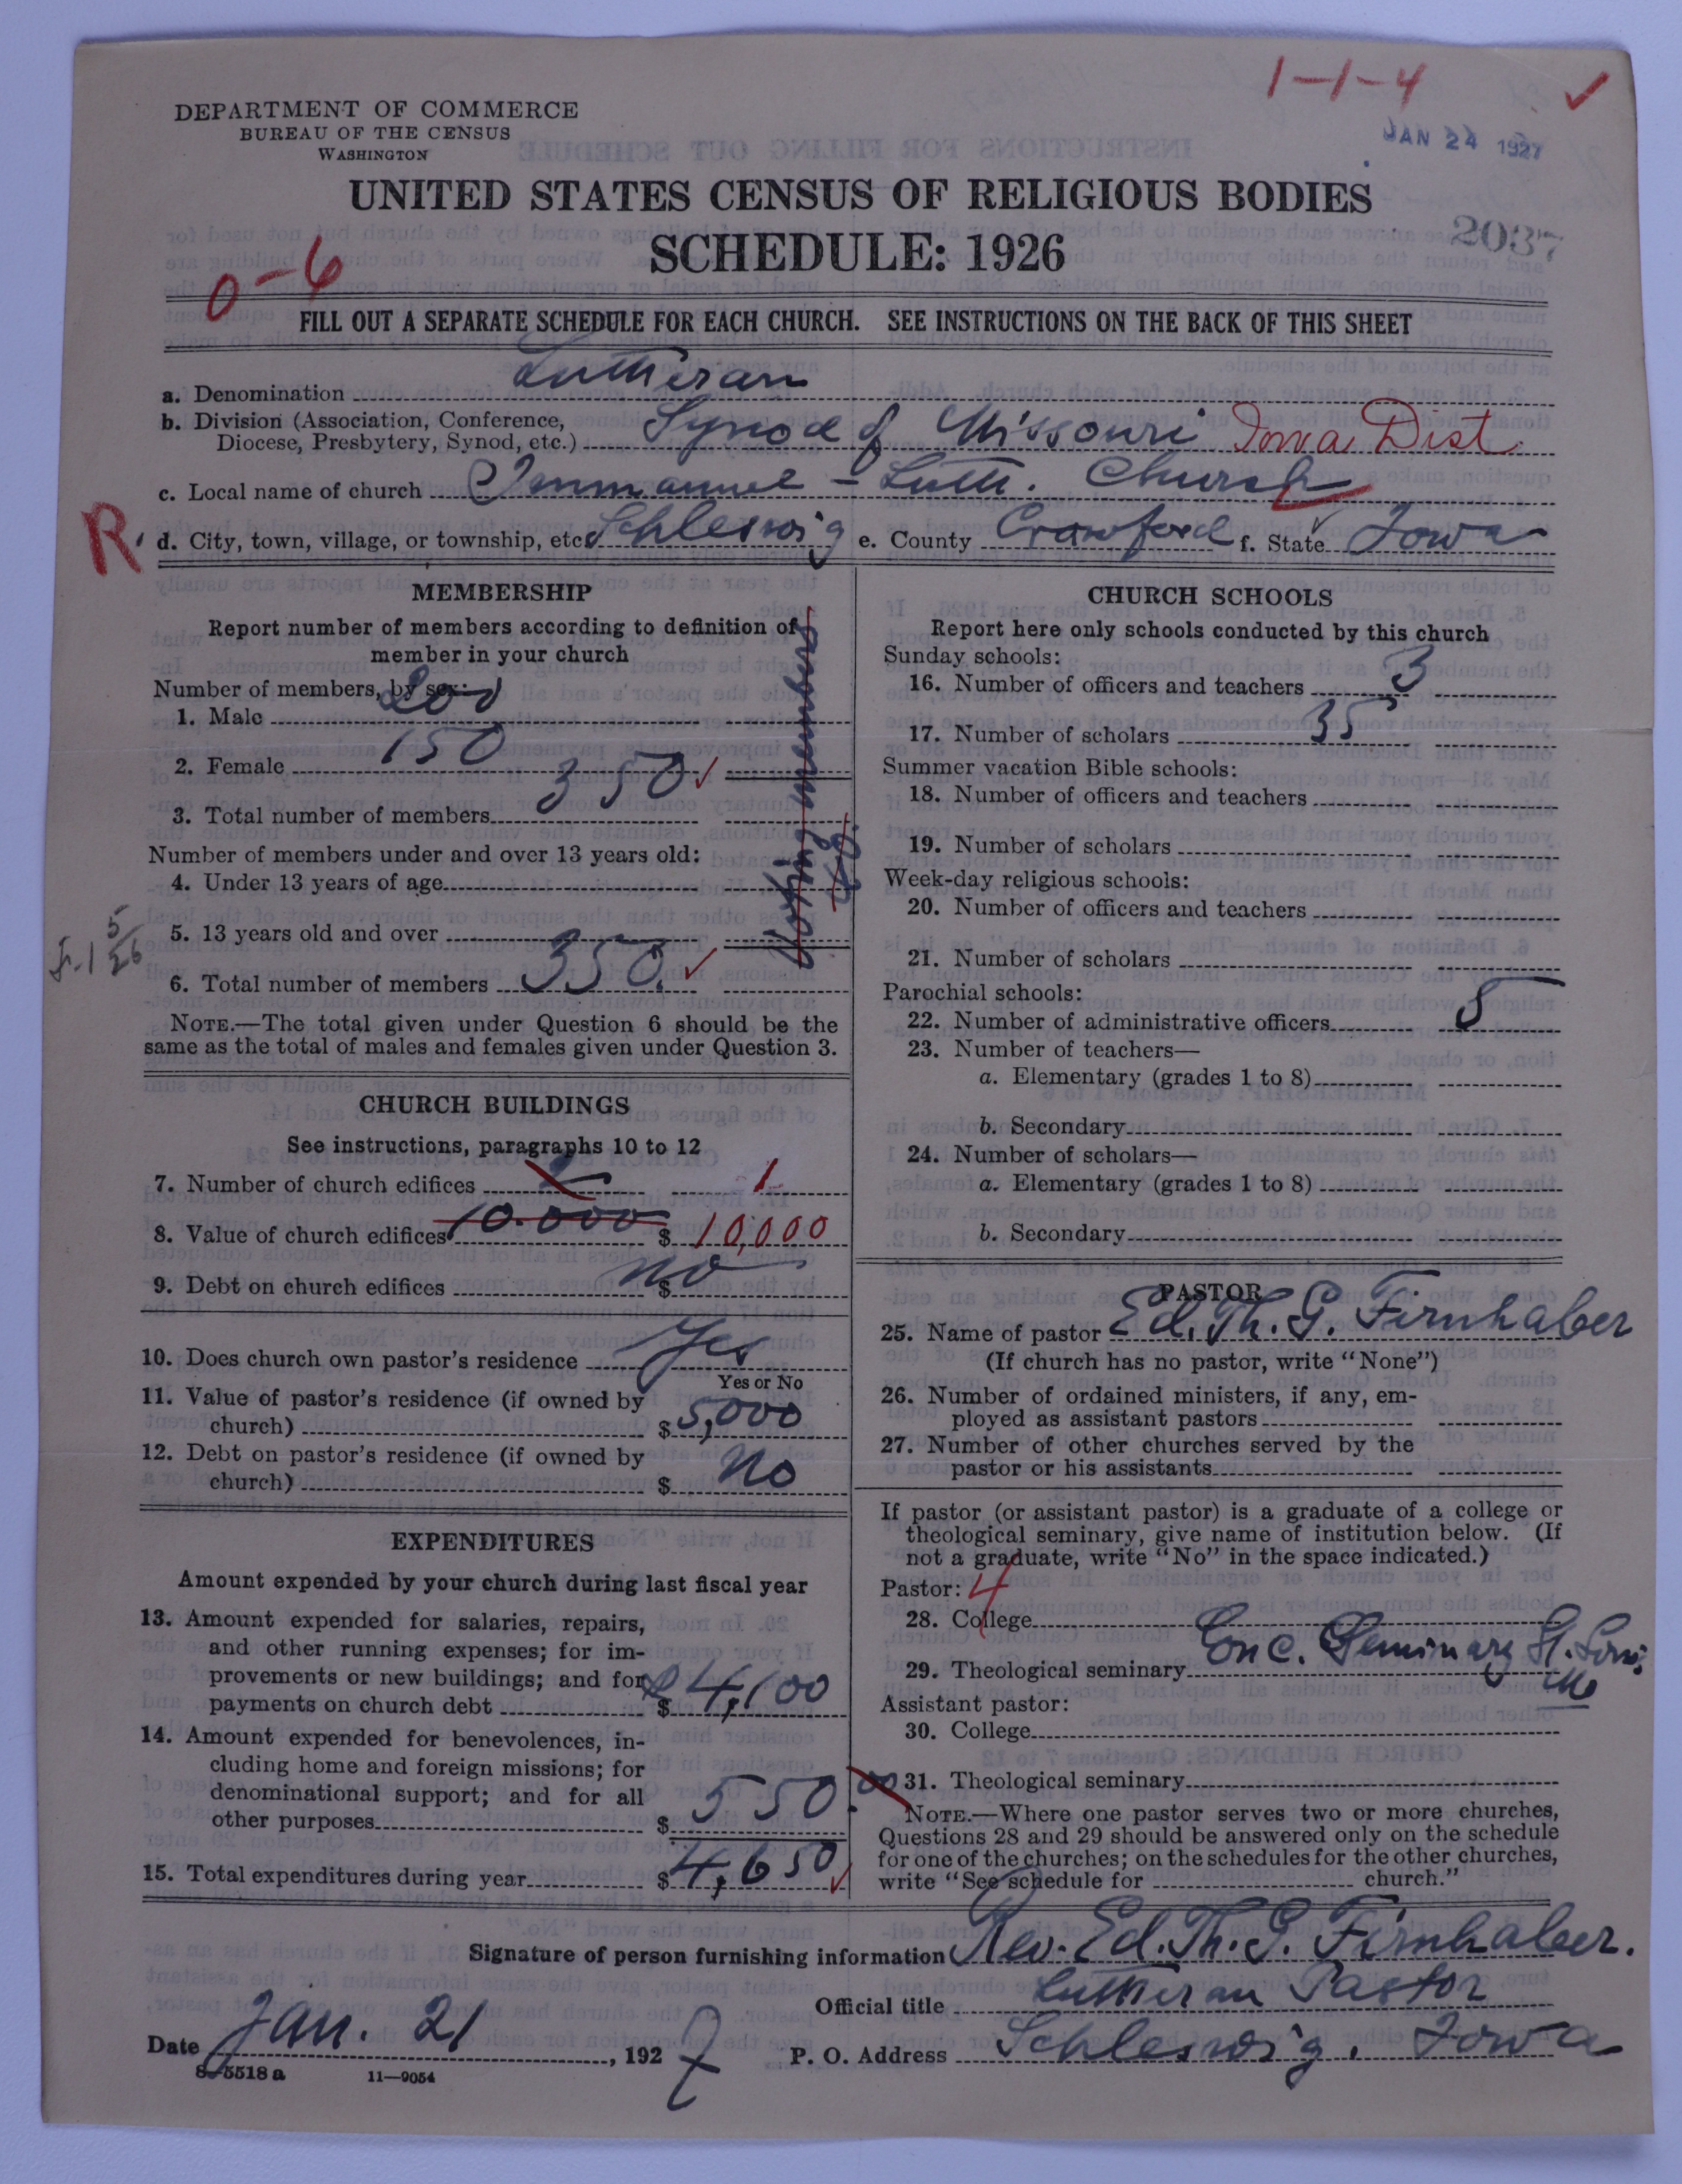 1-1-4 ✓
DEPARTMENT OF COMMERCE
BUREAU OF THE CENSUS
WASHINGTON
JAN 24 1927
UNITED STATES CENSUS OF RELIGIOUS BODIES
SCHEDULE: 1926
2037
0-6
FILL OUT A SEPARATE SCHEDULE FOR EACH CHURCH. SEE INSTRUCTIONS ON THE BACK OF THIS SHEET
a. Denomination Lutheran
b. Division (Association, Conference,
Diocese, Presbytery, Synod, etc.) Synod of Missouri Iowa Dist.
c. Local name of church Immanuel - Luth. Church
R. d. City, town, village, or township, etc. Schleswig e. County Crawford f. State Iowa
MEMBERSHIP
Report number of members according to definition of
member in your church
Number of members, by sex:
1. Male 200
2. Female 150
3. Total number of members 350 ✓
Number of members under and over 13 years old:
4. Under 13 years of age
5. 13 years old and over
6. Total number of members 350. ✓
Voting members
NOTE.—The total given under Question 6 should be the
same as the total of males and females given under Question 3.
CHURCH BUILDINGS
See instructions, paragraphs 10 to 12
7. Number of church edifices 1
8. Value of church edifices 10.000 $ 10,000
9. Debt on church edifices $ no
10. Does church own pastor's residence Yes
Yes or No
11. Value of pastor's residence (if owned by
church) $ 5,000
12. Debt on pastor's residence (if owned by
church) $ No
EXPENDITURES
Amount expended by your church during last fiscal year
13. Amount expended for salaries, repairs,
and other running expenses; for im-
provements or new buildings; and for
payments on church debt $ 4,100
14. Amount expended for benevolences, in-
cluding home and foreign missions; for
denominational support; and for all
other purposes $ 550.00
15. Total expenditures during year $ 4,650 ✓
CHURCH SCHOOLS
Report here only schools conducted by this church
Sunday schools:
16. Number of officers and teachers 3
17. Number of scholars 35
Summer vacation Bible schools:
18. Number of officers and teachers
19. Number of scholars
Week-day religious schools:
20. Number of officers and teachers
21. Number of scholars
Parochial schools:
22. Number of administrative officers 5
23. Number of teachers—
a. Elementary (grades 1 to 8)
b. Secondary
24. Number of scholars—
a. Elementary (grades 1 to 8)
b. Secondary
PASTOR
25. Name of pastor Ed. Th. G. Firnhaber
(If church has no pastor, write "None")
26. Number of ordained ministers, if any, em-
ployed as assistant pastors
27. Number of other churches served by the
pastor or his assistants
If pastor (or assistant pastor) is a graduate of a college or
theological seminary, give name of institution below. (If
not a graduate, write "No" in the space indicated.)
Pastor: 4
28. College
29. Theological seminary Conc. Seminary St. Louis
Mo
Assistant pastor:
30. College
31. Theological seminary
NOTE.—Where one pastor serves two or more churches,
Questions 28 and 29 should be answered only on the schedule
for one of the churches; on the schedules for the other churches,
write "See schedule for church."
Signature of person furnishing information Rev. Ed. Th. G. Firnhaber.
Official title Lutheran Pastor
Date Jan. 21, 1927 P. O. Address Schleswig, Iowa
8-5518 a 11-9054